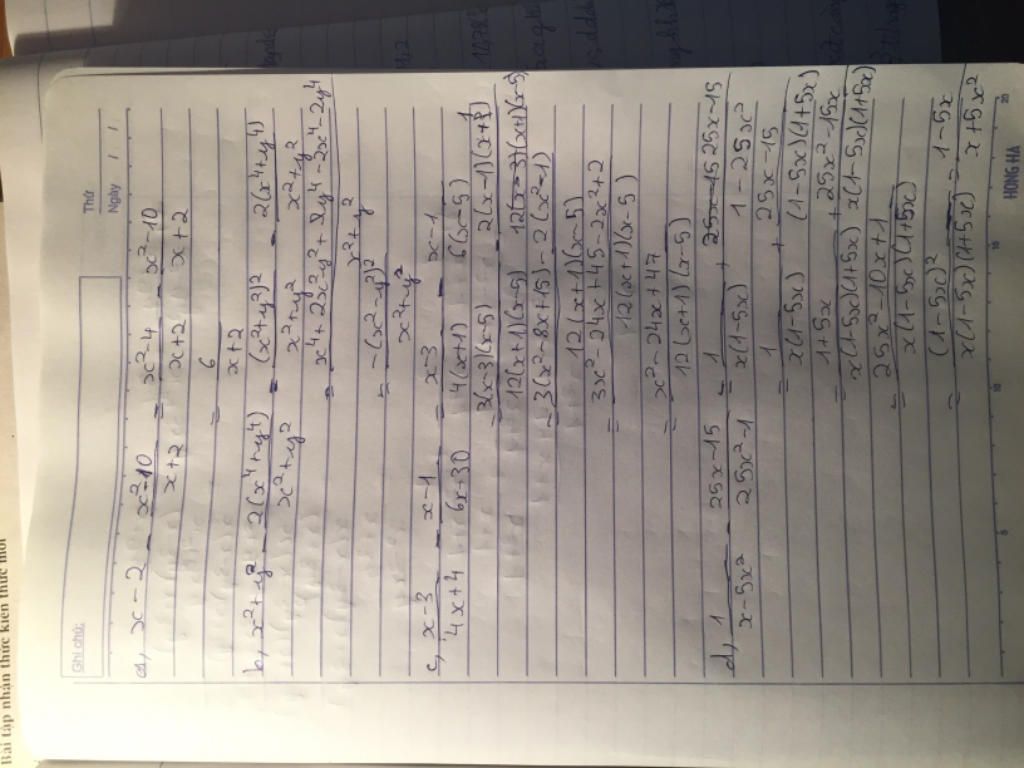 Bài tập nhận thức kiến thức mới
Ghi chú:
Thứ
Ngày / /
a, x - 2 - x²-10/x+2 = x²-4/x+2 - x²-10/x+2
= 6/x+2
b, x²+y² - 2(x⁴+y⁴)/x²+y² = (x⁴+y²)²/x²+y² - 2(x⁴+y⁴)/x²+y²
= x⁴+2x²y²+y⁴-2x⁴-2y⁴/x²+y²
= -(x²-y²)²/x²+y²
c, x-3/4x+4 - x-1/6x-30 = x-3/4(x+1) - x-1/6(x-5)
= 3(x-3)(x-5)/12(x+1)(x-5) - 2(x-1)(x+1)/12(x+1)(x-5)
= 3(x²-8x+15)-2(x²-1)/12(x+1)(x-5)
= 3x²-24x+45-2x²+2/12(x+1)(x-5)
= x²-24x+47/12(x+1)(x-5)
d, 1/x-5x² - 25x-15/25x²-1 = 1/x(1-5x) + 25x-15/1-25x²
= 1/x(1-5x) + 25x-15/(1-5x)(1+5x)
= 1+5x/x(1-5x)(1+5x) + 25x²-15x/x(1-5x)(1+5x)
= 25x²-10x+1/x(1-5x)(1+5x)
= (1-5x)²/x(1-5x)(1+5x) = 1-5x/x+5x²
5 10 15 20
HONG HA